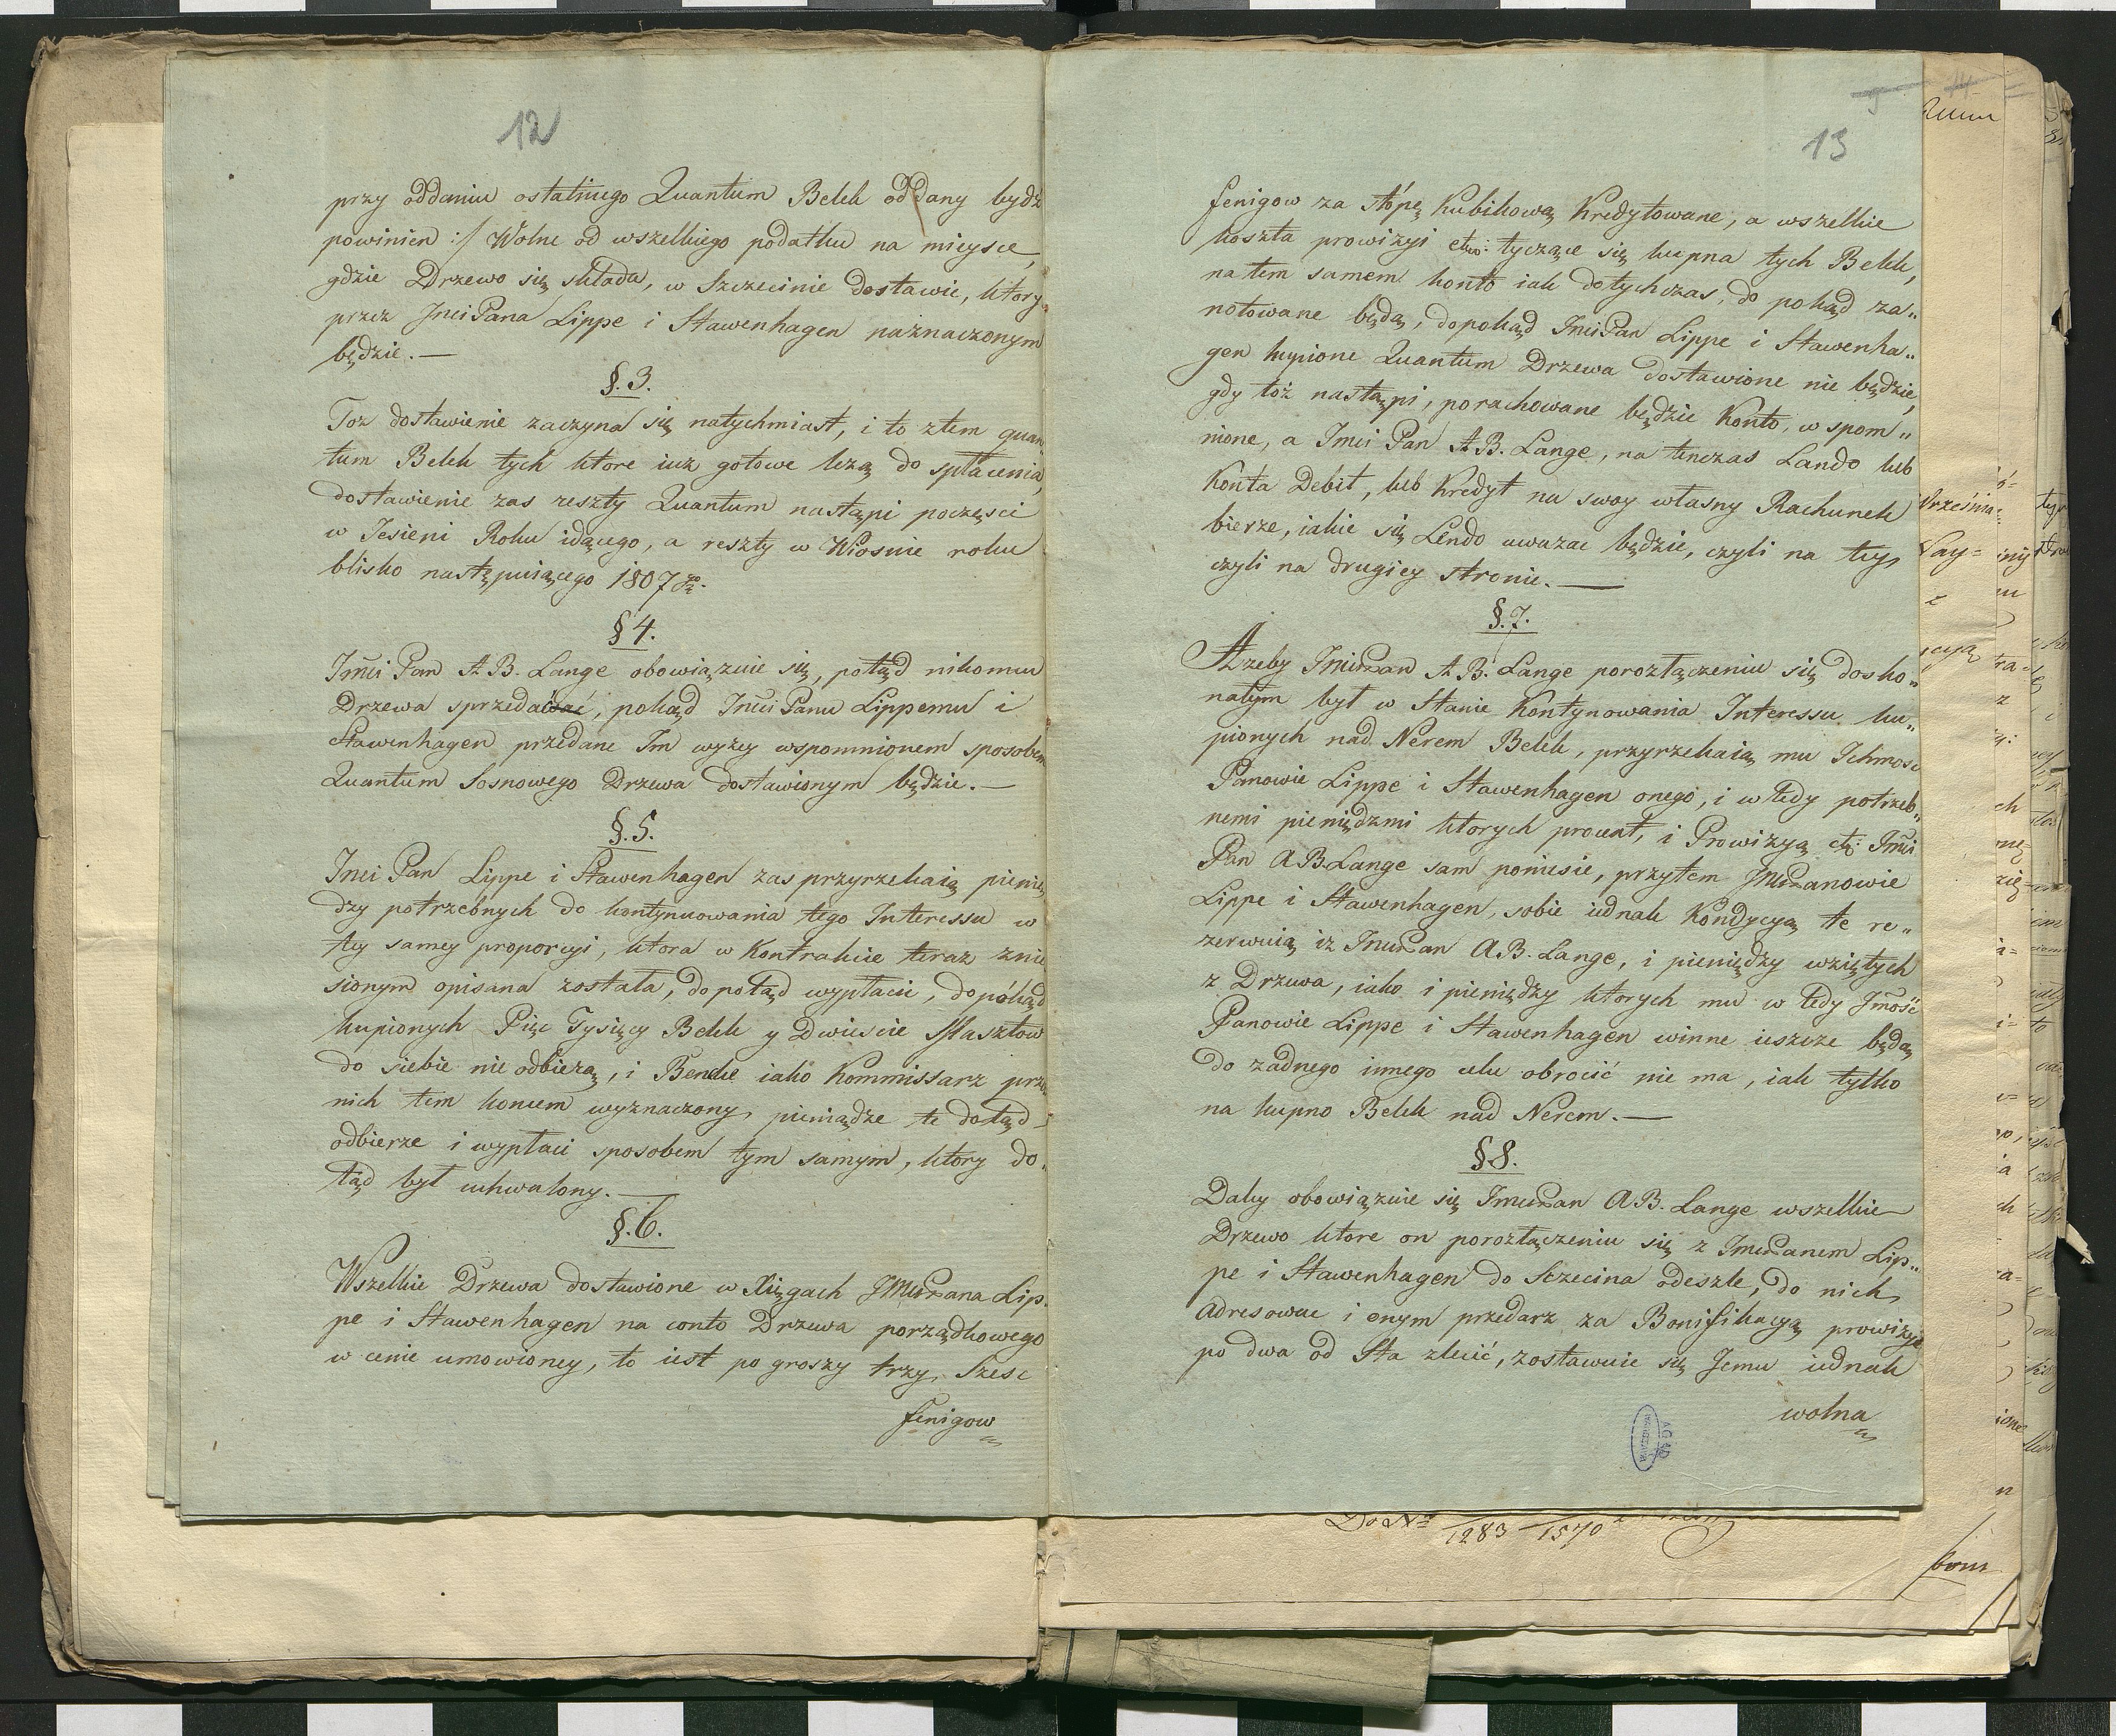 12
przy oddaniu ostatniego Quantum Belek oddany bydź
powinien :/ Wolne od wszelkiego podatku na mieysce,
gdzie Drzewo się składa, w Szczecinie dostawić, ktory
przez Jmci Pana Lippe i Stawenhagen naznaczonym
będzie. —
§. 3.
Toż dostawienie zaczyna się natychmiast, i to z tem quan
tum Belek tych ktore iuż gotowe leżą do spłacenia,
dostawienie zas reszty Quantum nastąpi poczęsci
w Jesieni Roku idącego, a reszty w Wiosnie roku
blisko następuiącego 1807 go.
§ 4.
Jmci Pan A B. Lange obowiązuie się, potąd nikomu
Drzewa sprzedawać, pokąd Jmci Panu Lippemu i
Stawenhagen przedane Im wyżey wspomnionem sposobem
Quantum Sosnowego Drzewa dostawionym będzie. —
§. 5.
Jmci Pan Lippe i Stawenhagen zas przyrzekaią pienię
dzy potrzebnych do kontynuowania tego Interessu w
tey samey proporcyi, ktora w Kontrakcie teraz znie
sionym opisana została, dopotąd wypłacić, dopókąd
kupionych Pięc Tysięcy Belek y Dwieście Masztow
do siebie nie odbierzą, i Bencke iako Kommissarz przez
nich tem koncem wyznaczony, pieniądze te dotąd
odbierze i wypłaci sposobem tym samym, ktory do„
tąd był uchwalony. —
§. 6.
Wszelkie Drzewa dostawione w Xięgach JMci Pana Lip
pe i Stawenhagen na conto Drzewa porządkowego
w cenie umowioney, to iest po groszy trzy, Szesc
fenigow
13
fenigow za stópę Kubikową Kredytowane, a wszelkie
koszta prowizyi etc: tyczące się kupna tych Belek,
na tem samem konto iak dotychczas, do pokąd za„
notowane będą, dopokąd Jmci Pan Lippe i Stawenha„
gen kupione Quantum Drzewa dostawione nie będzie,
gdy toż nastąpi, porachowane będzie Konto, w spom„
nione, a Jmci Pan A B. Lange, na tenczas Lando lub
Konta Debit, lub Kredyt na swoy własny Rachunek
bierze, iakie się Lendo uważac będzie, czyli na tey,
czyli na drugiey stronie. —
§. 7.
Azeby Jmci Pan A B. Lange porozłączeniu się dosko„
nałym był w Stanie Kontynowania Interessu ku„
pionych nad Nerem Belek, przyrzekaią mu Ichmosc
Panowie Lippe i Stawenhagen onego, i w tedy potrzeb„
nemi pieniędzmi ktorych procent, i Prowizyą etc: Jmci
Pan A B. Lange sam poniesie, przytem JMci Panowie
Lippe i Stawenhagen, sobie iednak Kondycyą te re„
zerwuią iz Jmci Pan A B. Lange, i pieniędzy wziętych
z Drzewa, iako i pieniędzy ktorych mu w tedy Jmość
Panowie Lippe i Stawenhagen winne ieszcze będą,
do zadnego innego celu obrocić nie ma, iak tylko
na kupno Belek nad Nerem. —
§ 8.
Daley obowiązuie się Jmci Pan A B. Lange wszelkie
Drzewo ktore on porozłączeniu się z Jmci Panem Lip„
pe i Stawenhagen do Sczecina odeszle, do nich
adresowac i onym przedarz za Bonifikacyą prowizyi
po dwa od Sta zlecić, zostawuie się Jemu iednak
wolna
Do No 1283 1570